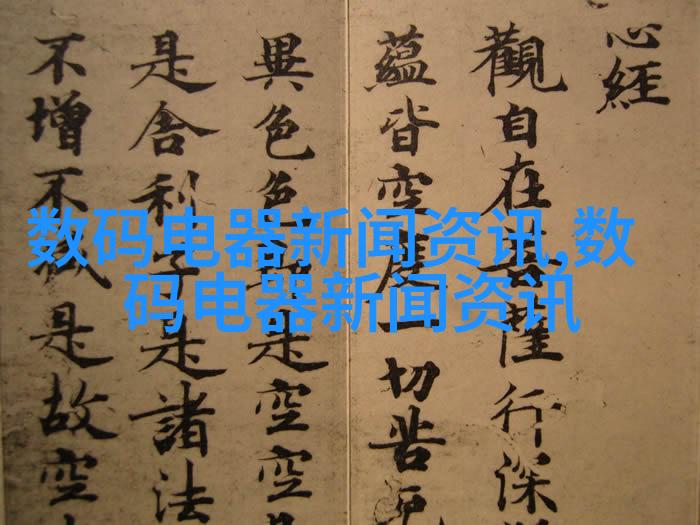 心經
觀自在菩薩行深
蘊皆空度一切苦厄
異色色即是空空
是舍利子是諸法
不增不減是故空
数码电器新闻资讯,数
码电器新闻资讯